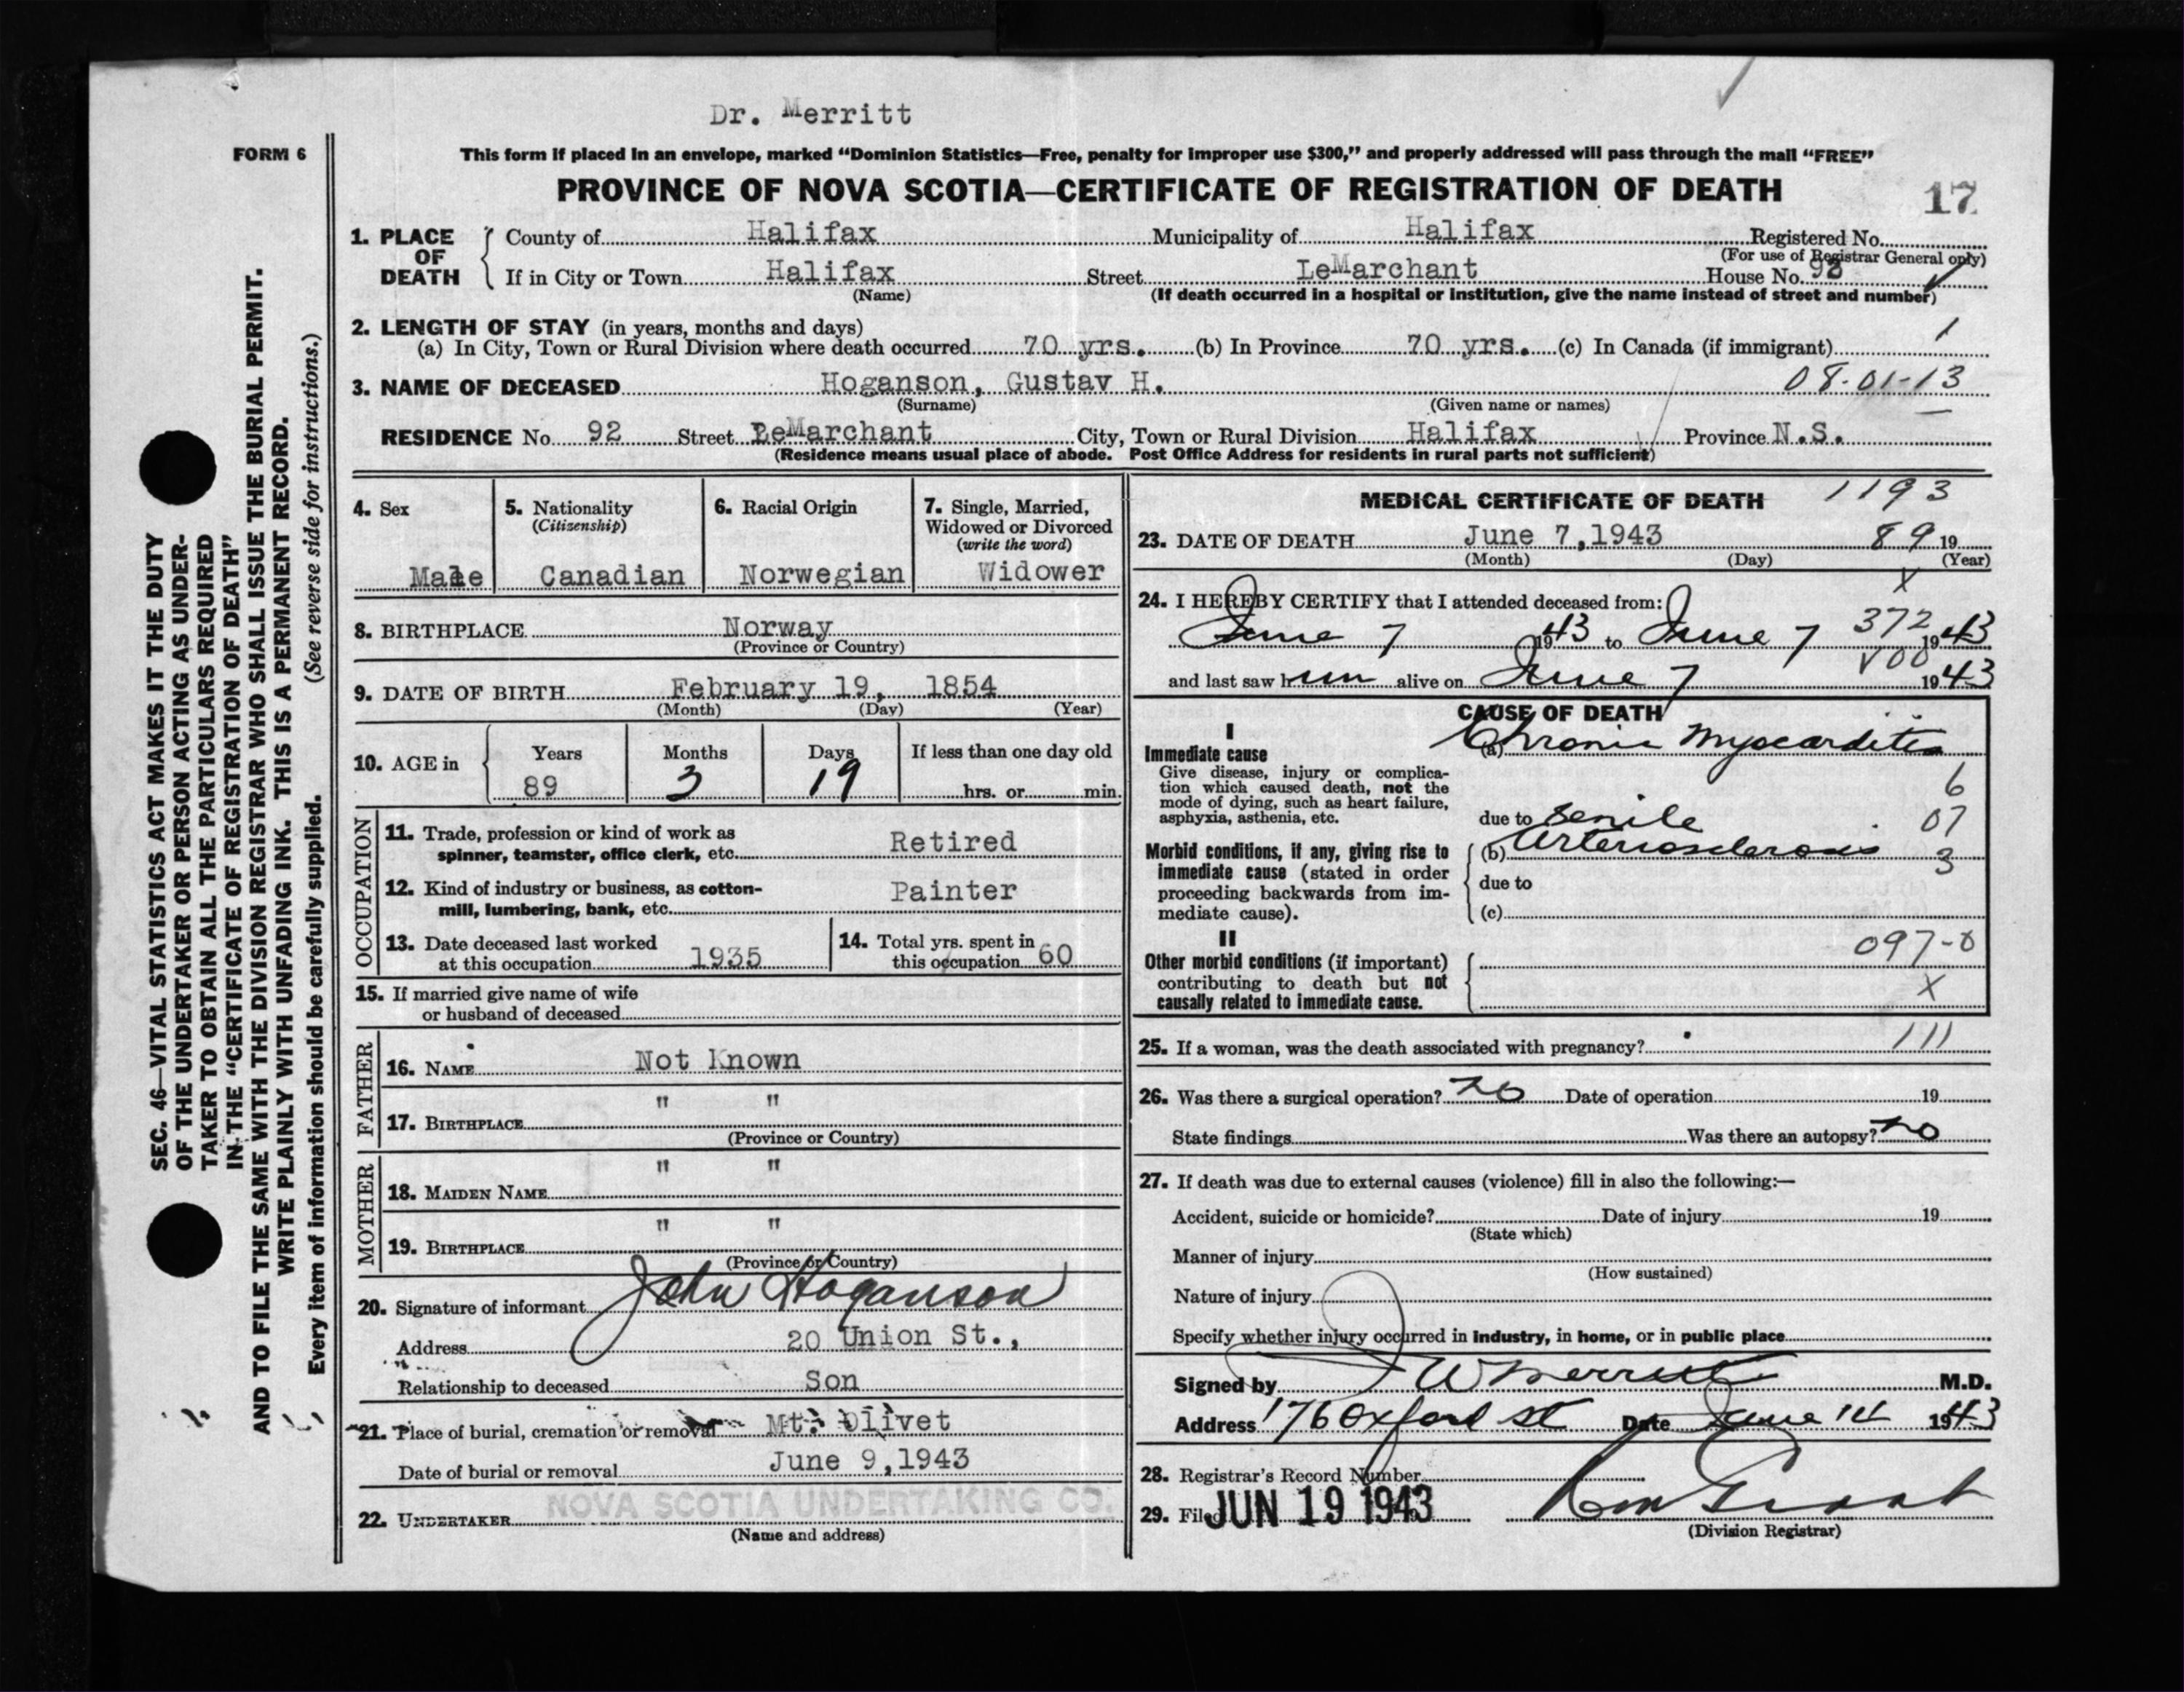 Dr. Merritt
FORM 6
This form if placed in an envelope, marked “Dominion Statistics—Free, penalty for improper use $300,” and properly addressed will pass through the mail “FREE”
PROVINCE OF NOVA SCOTIA—CERTIFICATE OF REGISTRATION OF DEATH
17
1. PLACE OF DEATH
County of Halifax Municipality of Halifax Registered No.
(For use of Registrar General only)
If in City or Town Halifax Street LeMarchant House No. 92
(Name) (If death occurred in a hospital or institution, give the name instead of street and number)
2. LENGTH OF STAY (in years, months and days)
(a) In City, Town or Rural Division where death occurred 70 yrs. (b) In Province 70 yrs. (c) In Canada (if immigrant) 1
3. NAME OF DECEASED Hoganson, Gustav H. 08-01-13
(Surname) (Given name or names)
RESIDENCE No. 92 Street LeMarchant City, Town or Rural Division Halifax Province N.S.
(Residence means usual place of abode. Post Office Address for residents in rural parts not sufficient)
4. Sex
Male
5. Nationality
(Citizenship)
Canadian
6. Racial Origin
Norwegian
7. Single, Married,
Widowed or Divorced
(write the word)
Widower
8. BIRTHPLACE Norway
(Province or Country)
9. DATE OF BIRTH February 19, 1854
(Month) (Day) (Year)
10. AGE in
Years Months Days If less than one day old
89 3 19 hrs. or min.
OCCUPATION
11. Trade, profession or kind of work as
spinner, teamster, office clerk, etc. Retired
12. Kind of industry or business, as cotton-
mill, lumbering, bank, etc. Painter
13. Date deceased last worked
at this occupation 1935
14. Total yrs. spent in
this occupation 60
15. If married give name of wife
or husband of deceased
FATHER
16. NAME Not Known
17. BIRTHPLACE " "
(Province or Country)
MOTHER
18. MAIDEN NAME " "
19. BIRTHPLACE " "
(Province or Country)
20. Signature of informant John Hoganson
Address 20 Union St.,
Relationship to deceased Son
21. Place of burial, cremation or removal Mt. Olivet
Date of burial or removal June 9,1943
22. UNDERTAKER NOVA SCOTIA UNDERTAKING CO.
(Name and address)
MEDICAL CERTIFICATE OF DEATH 1193
23. DATE OF DEATH June 7,1943 89 19
(Month) (Day) (Year)
X
24. I HEREBY CERTIFY that I attended deceased from:
June 7 1943 to June 7 372 1943
V00
and last saw him alive on June 7 1943
CAUSE OF DEATH
I
Immediate cause
Give disease, injury or complica-
tion which caused death, not the
mode of dying, such as heart failure,
asphyxia, asthenia, etc.
(a) Chronic Myocarditis
6
due to Senile 07
Morbid conditions, if any, giving rise to
immediate cause (stated in order
proceeding backwards from im-
mediate cause).
(b) Arteriosclerosis 3
due to
(c)
II
Other morbid conditions (if important)
contributing to death but not
causally related to immediate cause.
097-0
X
25. If a woman, was the death associated with pregnancy? 111
26. Was there a surgical operation? no Date of operation 19
State findings Was there an autopsy? no
27. If death was due to external causes (violence) fill in also the following:—
Accident, suicide or homicide? Date of injury 19
(State which)
Manner of injury
(How sustained)
Nature of injury
Specify whether injury occurred in industry, in home, or in public place
Signed by W Merritt M.D.
Address 176 Oxford St Date June 14 1943
28. Registrar's Record Number
29. Filed JUN 19 1943
(Division Registrar)
SEC. 46—VITAL STATISTICS ACT MAKES IT THE DUTY
OF THE UNDERTAKER OR PERSON ACTING AS UNDER-
TAKER TO OBTAIN ALL THE PARTICULARS REQUIRED
IN THE “CERTIFICATE OF REGISTRATION OF DEATH”
AND TO FILE THE SAME WITH THE DIVISION REGISTRAR WHO SHALL ISSUE THE BURIAL PERMIT.
WRITE PLAINLY WITH UNFADING INK. THIS IS A PERMANENT RECORD.
Every item of information should be carefully supplied. (See reverse side for instructions.)